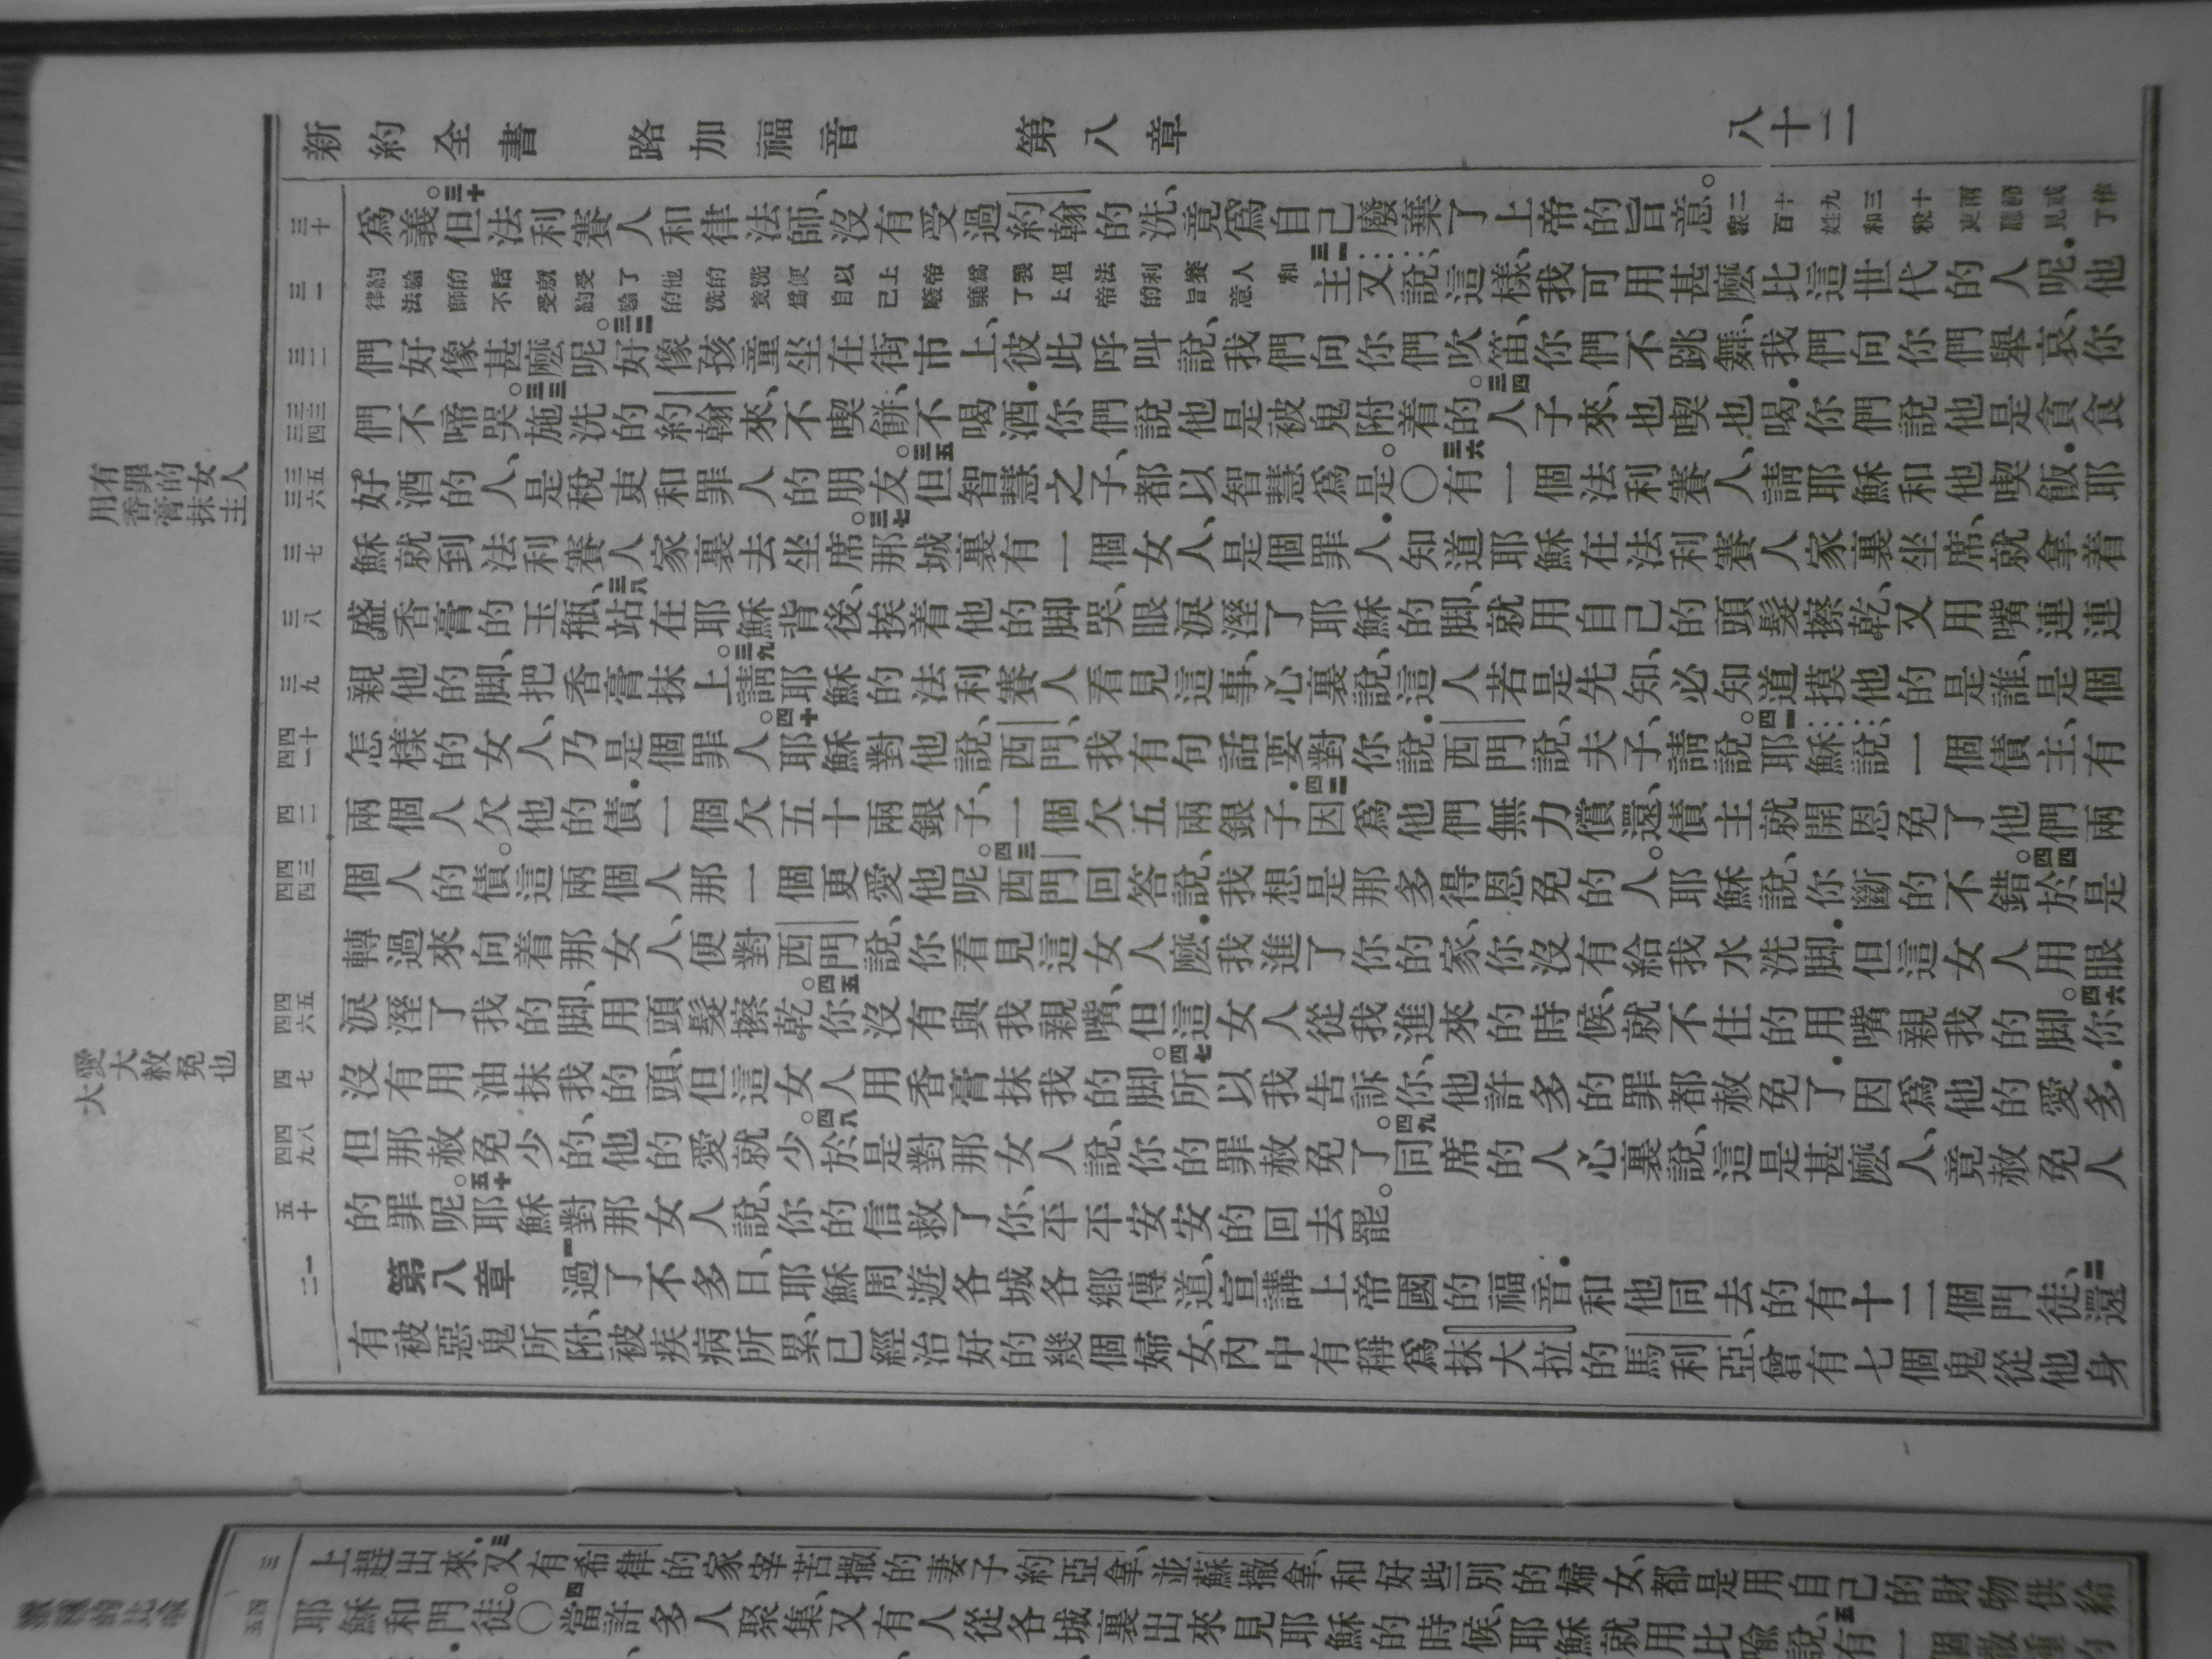 新約全書 路加福音 第八章 八十二
三十
三一
三二
三三 三四
三五 三六
三七
三八
三九
四十 四一
四二
四三 四四
四五 四六
四七
四八 四九
五十
一 二
為義。三十但法利賽人和律法師、沒有受過約翰的洗、竟為自己廢棄了上帝的旨意。二十九三十兩節或作衆百姓和稅吏聽見了
約翰的話就受了他的洗便以上帝為義但法利賽人和律法師不受約翰的洗竟為自己廢棄了上帝的旨意三一主又說、這樣、我可用甚麼比這世代的人呢．他
們好像甚麼呢。三二好像孩童坐在街市上、彼此呼叫說、我們向你們吹笛、你們不跳舞、我們向你們舉哀、你
們不啼哭。三三施洗的約翰來、不喫餅、不喝酒．你們說他是被鬼附着的。三四人子來、也喫也喝．你們說他是貪食
好酒的人、是稅吏和罪人的朋友。三五但智慧之子、都以智慧為是。〇三六有一個法利賽人、請耶穌和他喫飯．耶
穌就到法利賽人家裏去坐席。三七那城裏有一個女人、是個罪人．知道耶穌在法利賽人家裏坐席、就拿着
盛香膏的玉瓶、三八站在耶穌背後、挨着他的脚哭、眼淚溼了耶穌的脚、就用自己的頭髮擦乾、又用嘴連連
親他的脚、把香膏抹上。三九請耶穌的法利賽人看見這事、心裏說、這人若是先知、必知道摸他的是誰、是個
怎樣的女人、乃是個罪人。四十耶穌對他說、西門、我有句話要對你說．西門說、夫子、請說。四一耶穌說、一個債主、有
兩個人欠他的債．一個欠五十兩銀子、一個欠五兩銀子．四二因為他們無力償還、債主就開恩免了他們兩
個人的債。這兩個人那一個更愛他呢。四三西門回答說、我想是那多得恩免的人。耶穌說、你斷的不錯。四四於是
轉過來向着那女人、便對西門說、你看見這女人麼．我進了你的家、你沒有給我水洗脚．但這女人用眼
淚溼了我的脚、用頭髮擦乾。四五你沒有與我親嘴、但這女人從我進來的時候、就不住的用嘴親我的脚。四六你
沒有用油抹我的頭、但這女人用香膏抹我的脚。四七所以我告訴你、他許多的罪都赦免了．因為他的愛多．
但那赦免少的、他的愛就少。四八於是對那女人說、你的罪赦免了。四九同席的人心裏說、這是甚麼人、竟赦免人
的罪呢。五十耶穌對那女人說、你的信救了你、平平安安的回去罷。
第八章 一過了不多日、耶穌周遊各城各鄉傳道、宣講上帝國的福音．和他同去的有十二個門徒、二還
有被惡鬼所附、被疾病所累、已經治好的幾個婦女、內中有稱為抹大拉的馬利亞、曾有七個鬼從他身
有罪的女人
用香膏抹主
愛大赦免也
大
三
上趕出來．三又有希律的家宰苦撒的妻子約亞拿、並蘇撒拿、和好些別的婦女、都是用自己的財物供給
四 五
耶穌和門徒。〇四當許多人聚集、又有人從各城裏出來見耶穌的時候、耶穌就用比喻說、五有一個撒種的